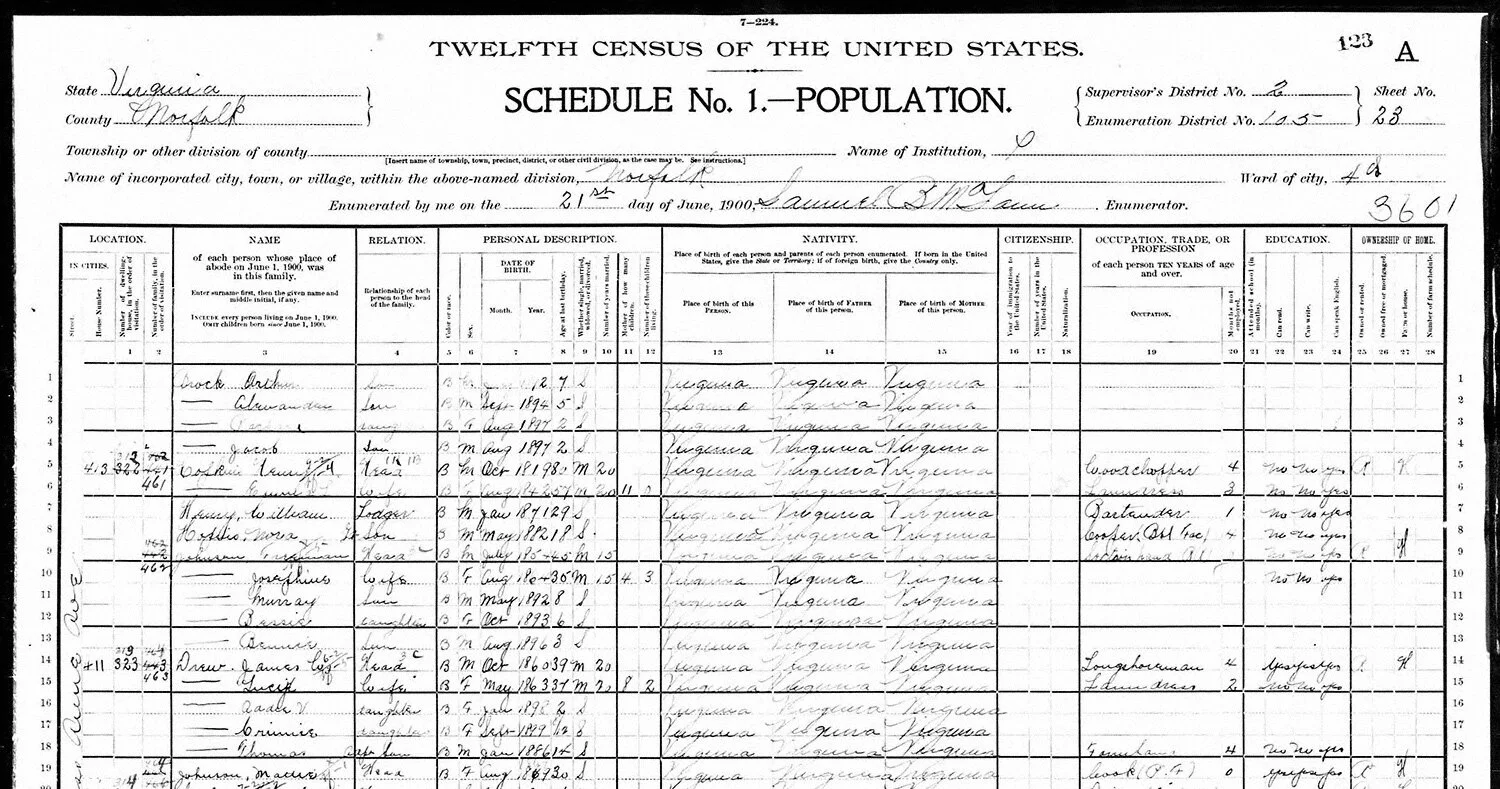 7—224.
TWELFTH CENSUS OF THE UNITED STATES.
123 A
State Virginia
County Norfolk
SCHEDULE No. 1.—POPULATION.
Supervisor's District No. 2
Enumeration District No. 105
Sheet No.
23
Township or other division of county
[Insert name of township, town, precinct, district, or other civil division, as the case may be. See instructions.]
Name of Institution,
Name of incorporated city, town, or village, within the above-named division, Norfolk
Ward of city, 4
Enumerated by me on the 21st day of June, 1900, Samuel B. Enumerator.
3601
LOCATION.
IN CITIES.
Street.
House Number.
Number of dwelling-house, in the order of visitation.
Number of family, in the order of visitation.
NAME
of each person whose place of abode on June 1, 1900, was in this family.
Enter surname first, then the given name and middle initial, if any.
INCLUDE every person living on June 1, 1900.
OMIT children born since June 1, 1900.
RELATION.
Relationship of each person to the head of the family.
PERSONAL DESCRIPTION.
Color or race.
Sex.
DATE OF BIRTH.
Month. Year.
Age at last birthday.
Whether single, married, widowed, or divorced.
Number of years married.
Mother of how many children.
Number of these children living.
NATIVITY.
Place of birth of each person and parents of each person enumerated. If born in the United States, give the State or Territory; if of foreign birth, give the Country only.
Place of birth of this PERSON.
Place of birth of FATHER of this person.
Place of birth of MOTHER of this person.
CITIZENSHIP.
Year of immigration to the United States.
Number of years in the United States.
Naturalization.
OCCUPATION, TRADE, OR PROFESSION
of each person TEN YEARS of age and over.
OCCUPATION.
Months not employed.
EDUCATION.
Attended school (in months).
Can read.
Can write.
Can speak English.
OWNERSHIP OF HOME.
Owned or rented.
Owned free or mortgaged.
Farm or house.
Number of farm schedule.
1 2 3 4 5 6 7 8 9 10 11 12 13 14 15 16 17 18 19 20 21 22 23 24 25 26 27 28
1 Brock Arthur Son B 7 S Virginia Virginia Virginia 1
2 — Alexander Son B M Sept 1894 5 S Virginia Virginia Virginia 2
3 — B F Aug 1897 2 S Virginia Virginia Virginia 3
4 — Jacob Son B M Aug 1897 2 S Virginia Virginia Virginia 4
5 413 Henry Head B M Oct 1819 80 M 20 Virginia Virginia Virginia Woodchopper 4 no no yes R 5
6 461 — Wife B F Aug 1842 57 M 20 11 0 Virginia Virginia Virginia Laundress 3 no no yes 6
7 Henry, William Lodger B M Jan 1871 29 S Virginia Virginia Virginia Bartender 1 no no yes 7
8 Son B M May 1882 18 S Virginia Virginia Virginia Cooper 4 no no yes 8
9 462 Johnson Head B M July 45 M 15 Virginia Virginia Virginia R H 9
10 — Josephine Wife B F Aug 35 M 15 4 3 Virginia Virginia Virginia no no yes 10
11 — Murray Son B M May 1892 8 S Virginia Virginia Virginia 11
12 — Bessie daughter B F Oct 1893 6 S Virginia Virginia Virginia 12
13 — Bennie Son B M Aug 1896 3 S Virginia Virginia Virginia 13
14 411 323 463 Drew James Head B M Oct 1860 39 M 20 Virginia Virginia Virginia Longshoreman 4 yes yes yes R H 14
15 — Lucy Wife B F May 1863 37 M 20 8 2 Virginia Virginia Virginia Laundress 2 no no yes 15
16 — Addie V daughter B F Jan 1898 2 S Virginia Virginia Virginia 16
17 — daughter B F Sept 1899 S Virginia Virginia Virginia 17
18 — Thomas Son B M Jan 1886 14 S Virginia Virginia Virginia 4 no no yes 18
19 Johnson, Mattie Head B F Aug 1869 30 S Virginia Virginia Virginia Cook (P. F) 0 yes yes yes R H 19
20